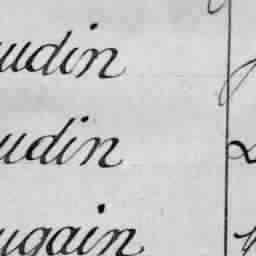 udin
udin
ugain